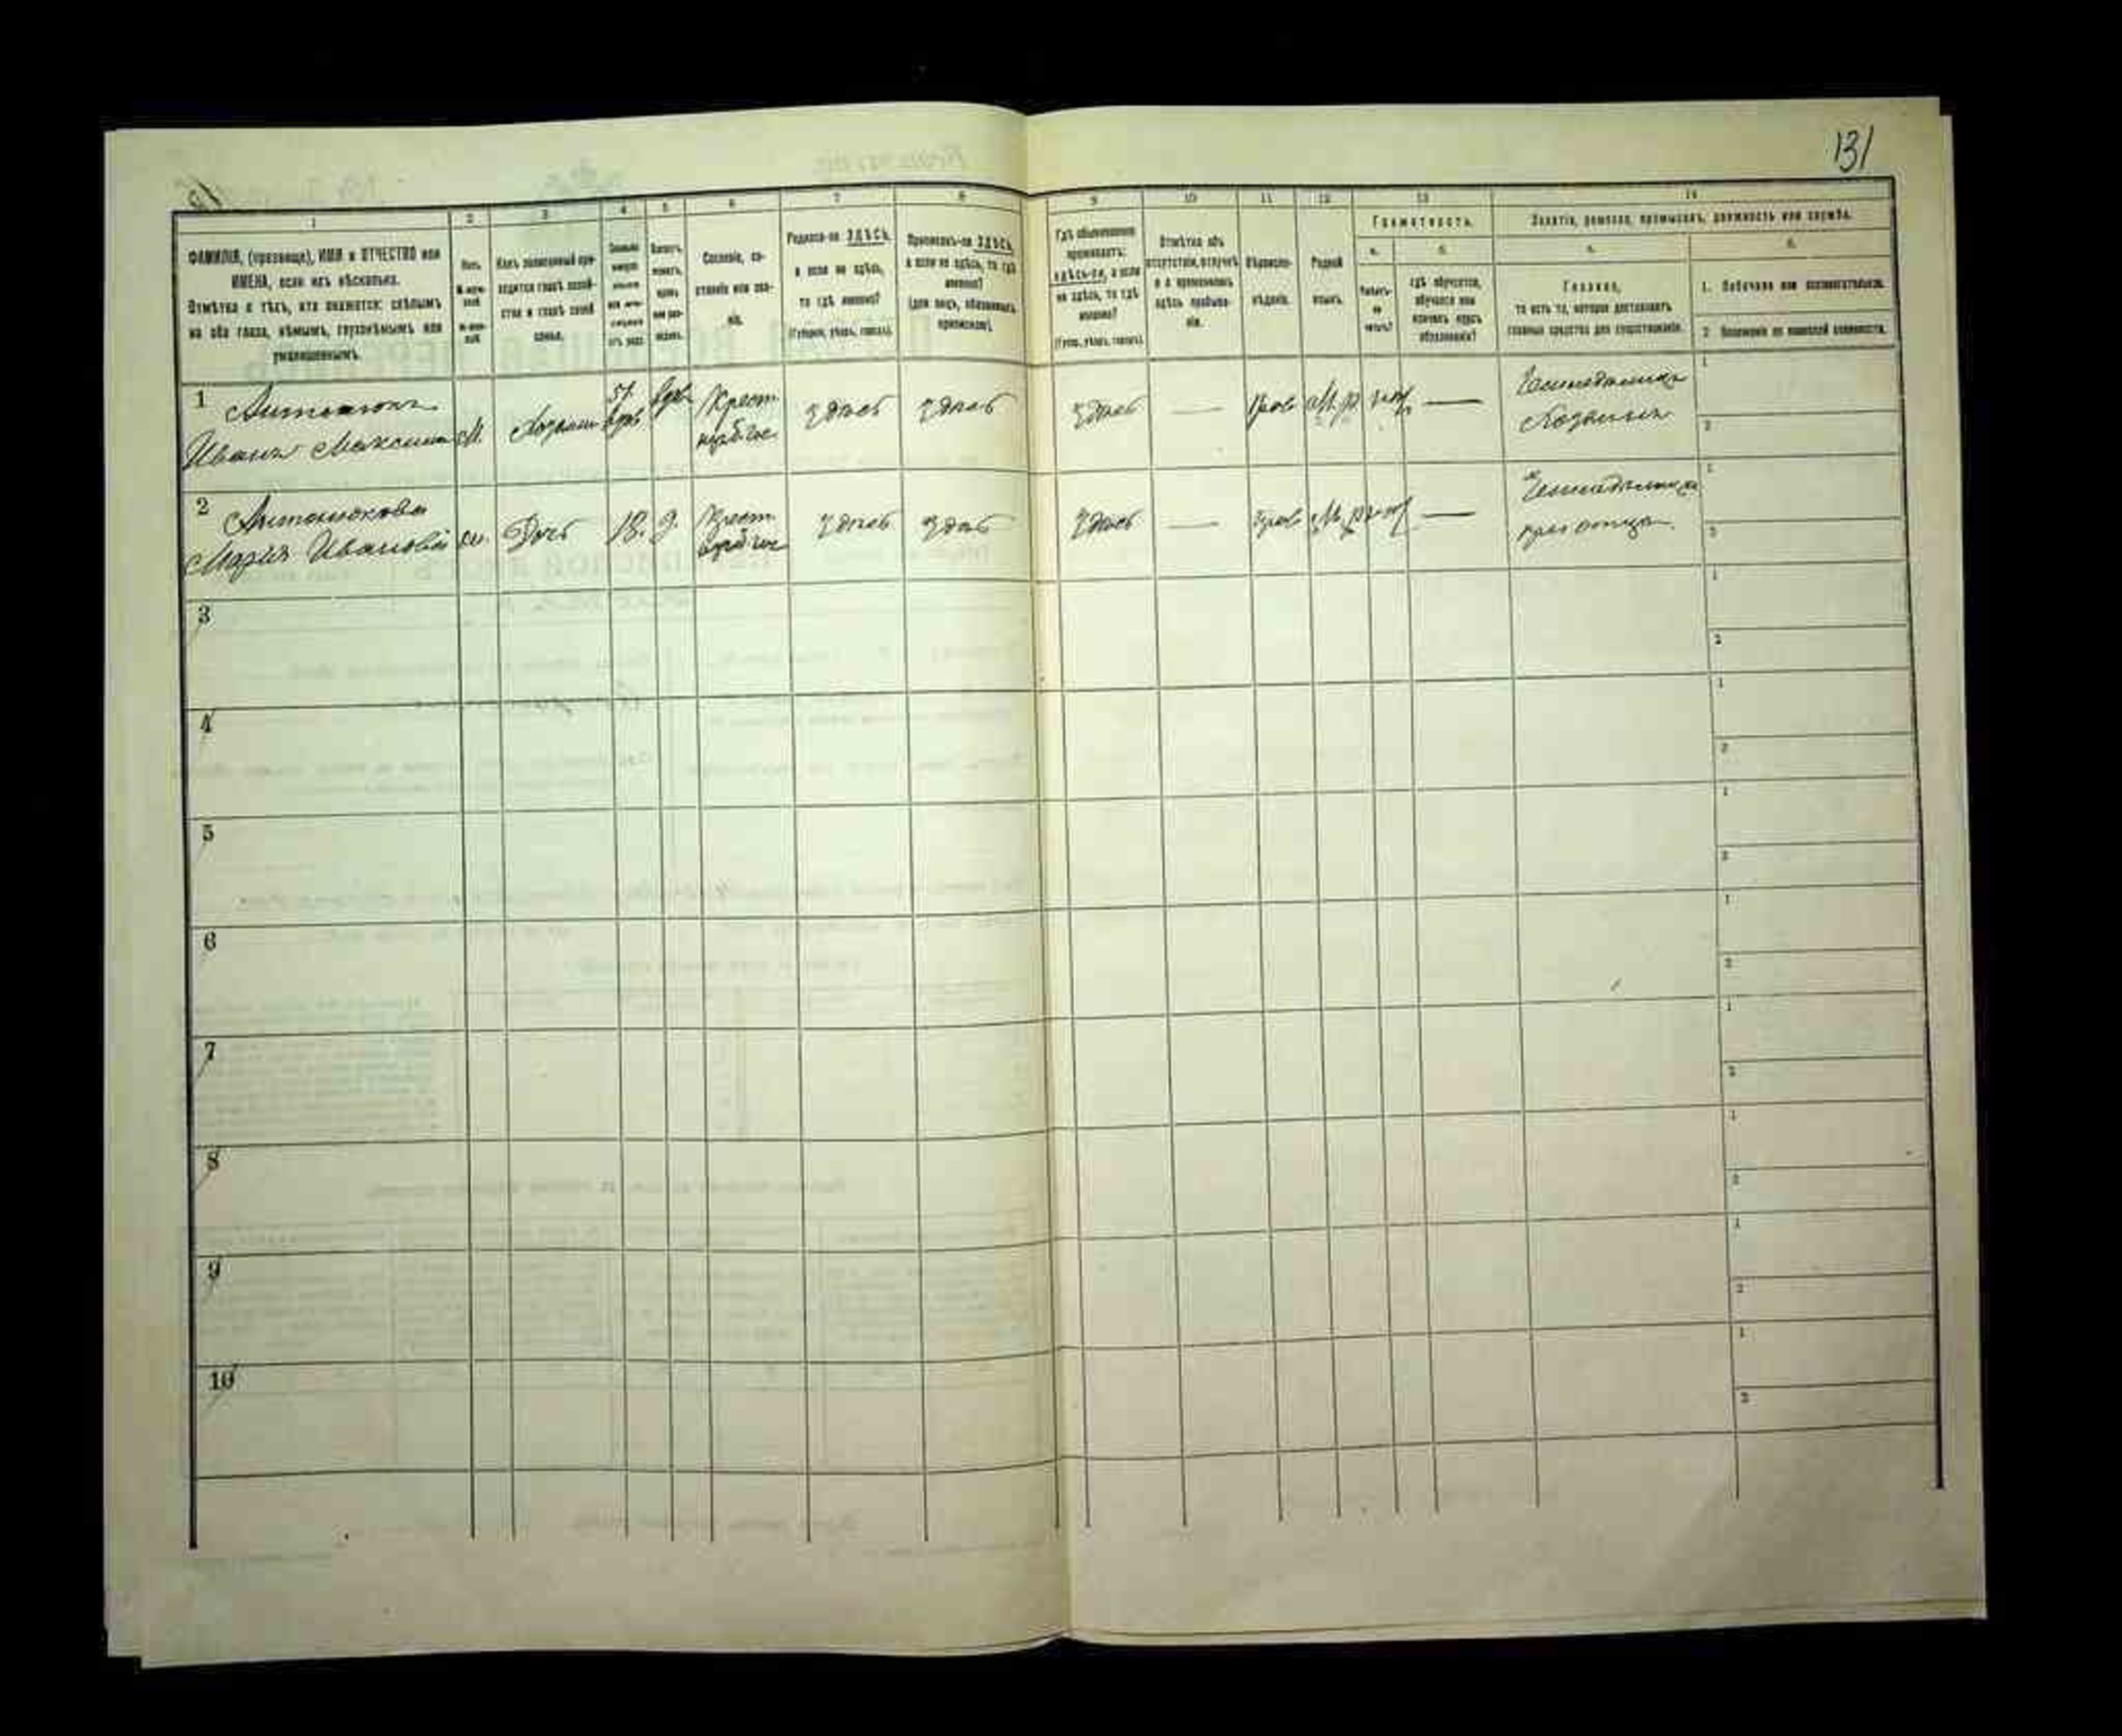 131
1 2 3 4 5 6 7 8 9 10 11 12 13 14
Грамотность. Занятіе, ремесло, промыселъ, должность или служба.
а. б. а. б.
ФАМИЛІЯ, (прозвище), ИМЯ и ОТЧЕСТВО или
ИМЕНА, если ихъ нѣсколько.
Отмѣтка о тѣхъ, кто окажется: слѣпымъ
на оба глаза, нѣмымъ, глухонѣмымъ или
умалишеннымъ.
Полъ.
Какъ записанный при-
ходится главѣ хозяй-
ства и главѣ своей
семьи.
Сословіе, со-
стояніе или зва-
ніе.
Родился-ли ЗДѢСЬ,
а если не здѣсь,
то гдѣ именно?
(Губернія, уѣздъ, городъ).
Приписанъ-ли ЗДѢСЬ,
а если не здѣсь, то гдѣ
именно?
(для лицъ, обязанныхъ
припиской).
Гдѣ обыкновенно
проживаетъ:
здѣсь-ли, а если
не здѣсь, то гдѣ
именно?
(Губер., уѣздъ, городъ).
Отмѣтка объ
отсутствіи, отлучкѣ
и о временномъ
здѣсь пребыва-
ніи.
Вѣроиспо-
вѣданіе.
Родной
языкъ.
Умѣетъ-
ли
читать?
гдѣ обучается,
обучался или
кончилъ курсъ
образованія?
Главное,
то есть то, которое доставляетъ
главныя средства для существованія.
1. Побочное или вспомогательное.
2. Положеніе по воинской повинности.
1 Антонюкъ
Иванъ Максим М. Хозяинъ 57 вдов Крест здѣсь здѣсь здѣсь — Прав М.р. нѣт — Земледѣлецъ 1
Хозяинъ 2
2 Антонюкова
Марія Иванова Дочь 18. Крест здѣсь здѣсь здѣсь — прав М.р. нѣт — 1
при отцѣ 2
3 1
2
4 1
2
5 1
2
6 1
2
7 1
2
8 1
2
9 1
2
10 1
2